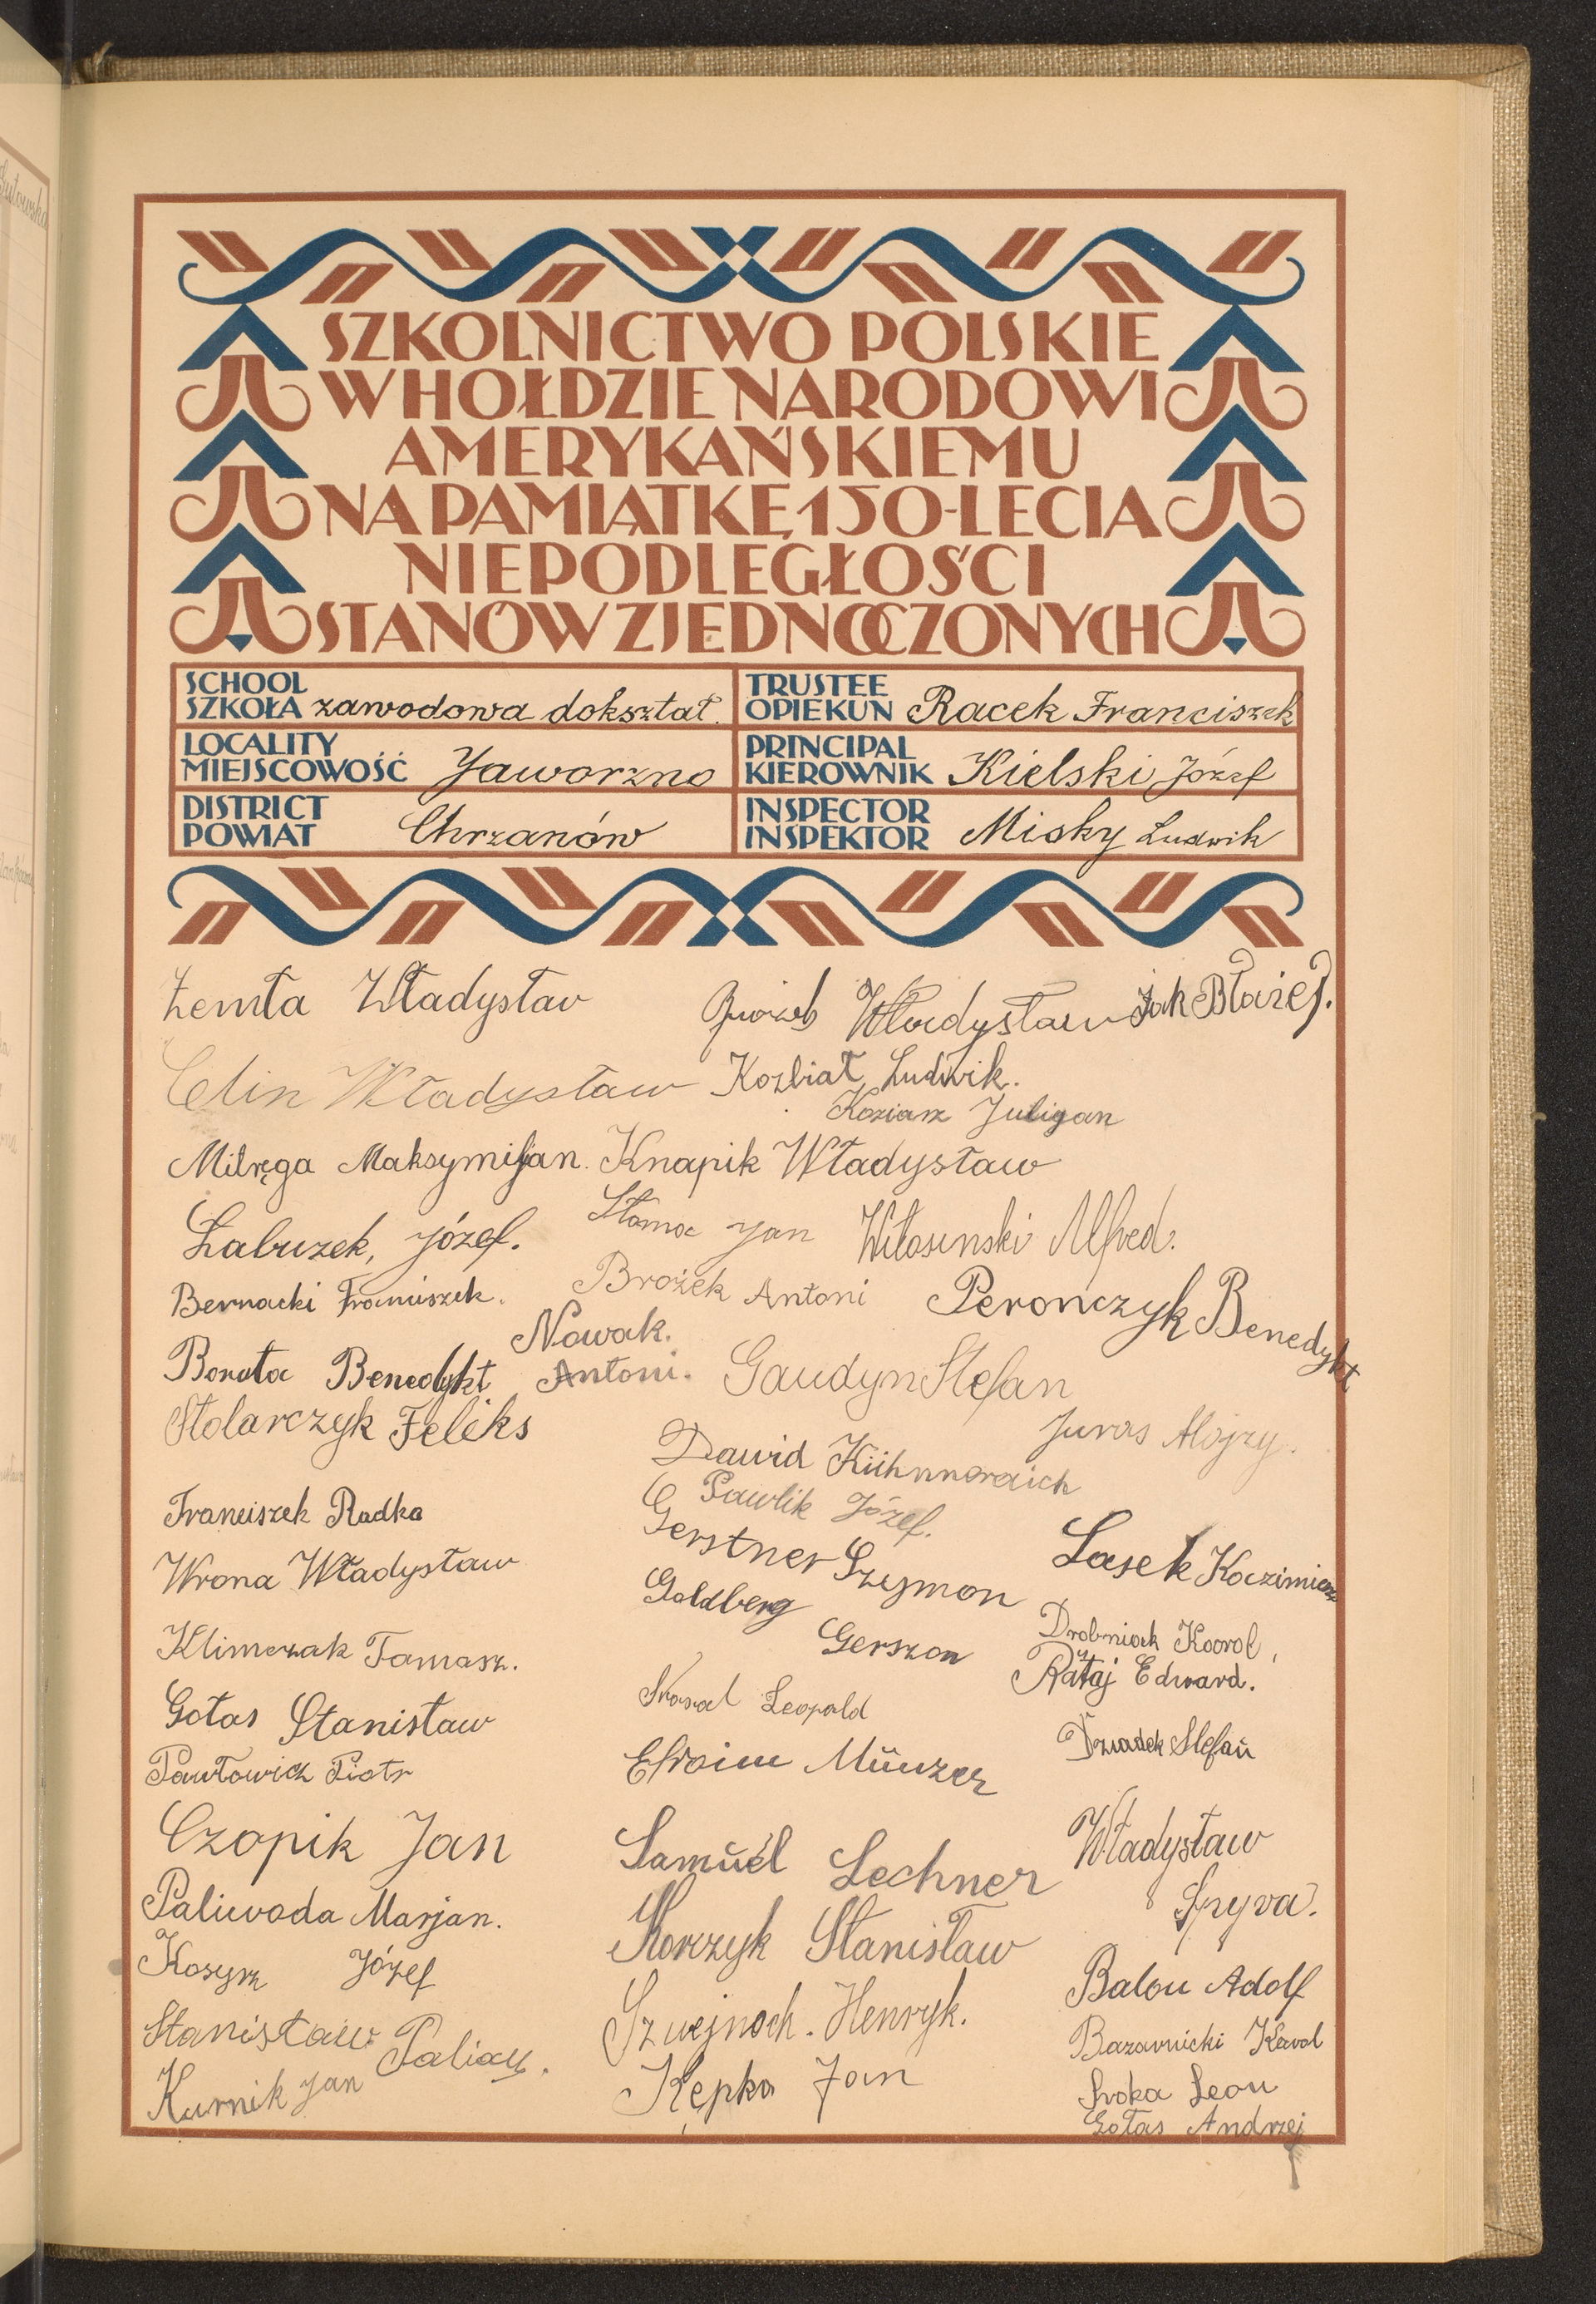 SZKOLNICTWO POLSKIE
W HOŁDZIE NARODOWI
AMERYKAŃSKIEMU
NA PAMIĄTKĘ 150-LECIA
NIEPODLEGŁOŚCI
STANÓW ZJEDNOCZONYCH
SCHOOL
SZKOŁA zawodowa dokształ.
TRUSTEE
OPIEKUN Racek Franciszek
LOCALITY
MIEJSCOWOŚĆ Jaworzno
PRINCIPAL
KIEROWNIK Kielski Józef
DISTRICT
POWIAT Chrzanów
INSPECTOR
INSPEKTOR Misky Ludwik
Żemła Władysław
Władysław
Żak Błażej.
Celin Władysław
Koźbiał Ludwik.
Koziarz Juligan
Milręga Maksymiljan.
Knapik Władysław
Łabuzek, Józef.
Słoma Jan
Witosinski Alfred.
Bernacki Franciszek.
Brożek Antoni
Perończyk Benedykt
Nowak.
Borota Benedykt
Antoni.
Gaudyn Stefan
Stolarczyk Feliks
Juras Alojzy.
Dawid Kühnnoreich
Pawlik Józef.
Franciszek Radko
Gerstner Szymon
Lasek Kazimierz
Wrona Władysław
Goldberg
Gerszon
Drobniak Karol,
Klimczak Tomasz.
Rataj Edward.
Leopold
Gołas Stanisław
Dziadek Stefan
Pawłowicz Piotr
Efroim Münzer
Czopik Jan
Samuel Lechner
Władysław
Spyra.
Paliwoda Marjan.
Korczyk Stanisław
Kosyrz Józef
Balon Adolf
Stanisław Paliay.
Szwejnoch. Henryk.
Bazarnicki Karol
Kurnik Jan
Kępka Jan
Sroka Leon
Gołas Andrzej